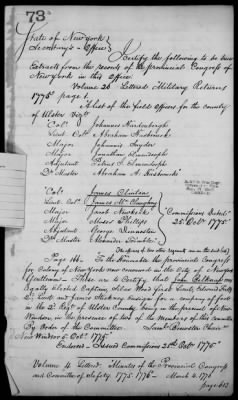 73
State of New York
Secretary's Office
I certify the following to be true
Extracts from the records of the provincial Congress of
New York in this Office.
Volume 25 Lettered Military Returns
1775 page
A list of the field Officers for the county
of Ulster Vizt
"Col. Johannes Hardenbergh
Lieut Colo Abraham Hasbrouck
Major Johannis Snyder
Major Jonathan Elmendorph
Adjutant
Qr Master Abraham A. Hasbrouck
"Col. James Clinton
Lieut Colo James McClaughry
Major Jacob Newkerk
Major Moses Phillips
Adjutant George Denniston
Qr Master Alexander Trimble
Commissions dated
25 Octr 1775
Page 166. To the Honorable the provincial Congress
for Colony of New York now convened in the City of New York
Gentlemen. These are to Certify that John Belknap was
Equally Elected Captain, Silas Wood first Lieut, Edward Falls
2d Lieut and James Stickney Ensign for a company of foot
in the 2d Regt of Ulster County being in the precinct of New
Windsor in the presence of two of the Members of this committee
By Order of the Committee. Saml Brewster Chairn
New Windsor 5 Octr 1775
Endorsed - Issued Commissions 25th Octr 1775"
Volume 4 Lettered Minutes of the Provincial Congress
and Committee of Safety 1775-1776 - March 4, 1776
page 613